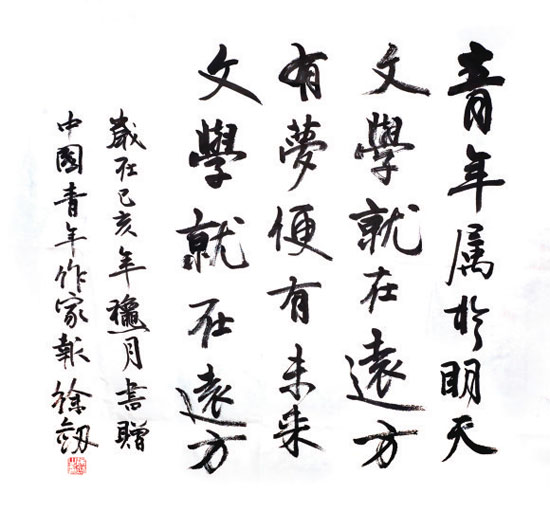 青年属於明天
文學就在遠方
有夢便有未来
文學就在遠方
歲在己亥年穐月書贈
中國青年作家報徐剑